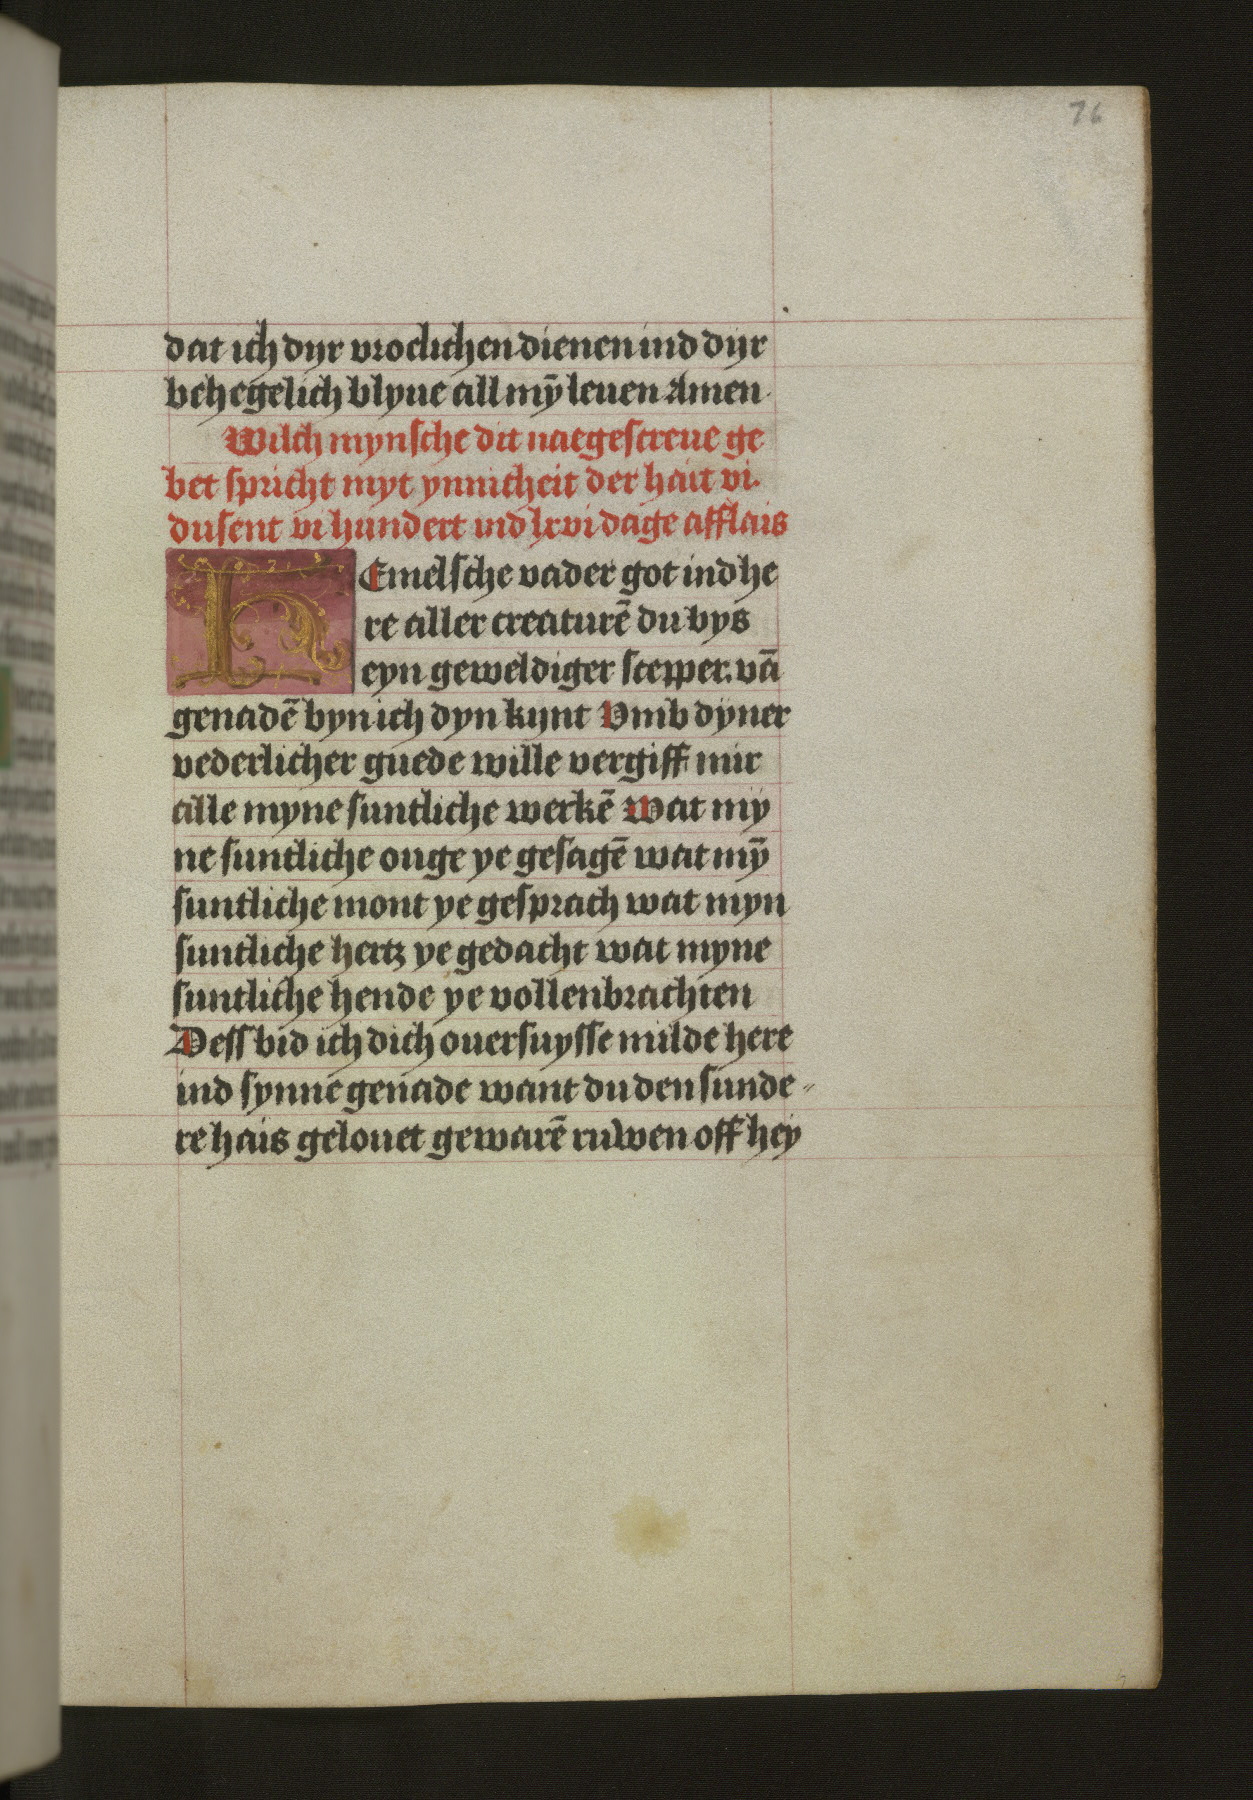 76
dat ich dyr vroelichen dienen ind dyr
behegelich blyue all mȳ leuen Amen
Wilch mynsche dit naegescreue ge
bet spricht myt ynnicheit der hait vi.
dusent vi hundert ind lxvi dage afflais
HEmelsche vader got ind he
re aller creaturē du bys
eyn geweldiger scepper. vā
genadē byn ich dyn kynt Vmb dyner
vederlicher guede wille vergiff mir
alle myne suntliche werkē Wat my
ne suntliche ouge ye gesagē wat mȳ
suntliche mont ye gesprach wat myn
suntliche hertz ye gedacht wat myne
suntliche hende ye vollenbrachten
Dess bid ich dich ouersuysse milde here
ind synne genade want du den sunde
re hais gelouet gewarē ruwen off hey